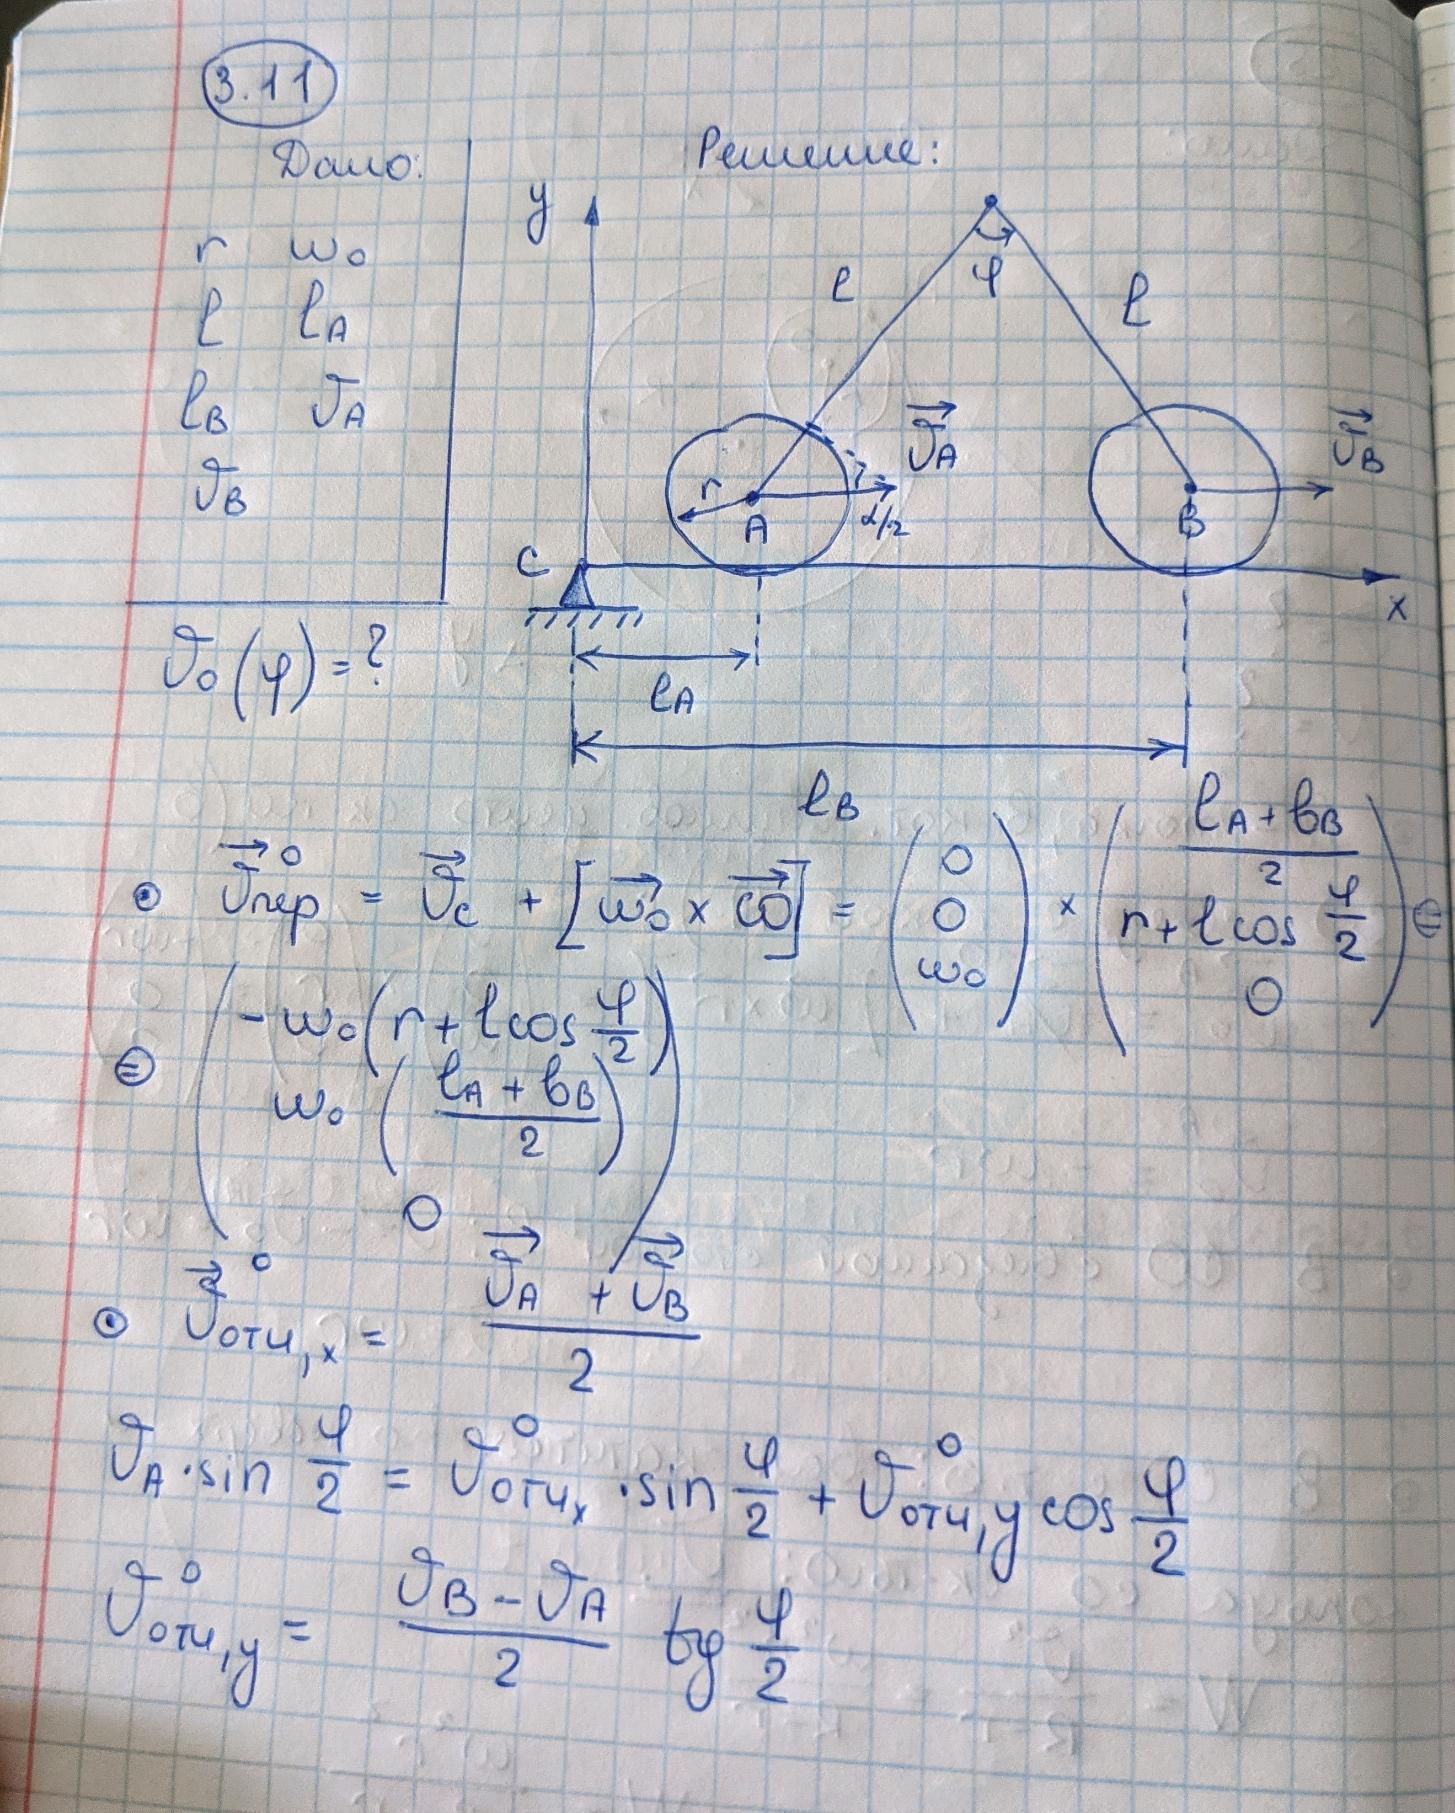 3.11
Дано:
r ω₀
l lA
lB VA
VB
V₀(φ) = ?
Решение:
y
l φ l
VA→
VB→
r
A
α/2
B
C
x
lA
lB
• Vпер→⁰ = Vc→ + [ω₀→ × CO→] = (0; 0; ω₀) × ((lA + lB)/2; r + l cos φ/2; 0) ⊜
⊜ (-ω₀(r + l cos φ/2); ω₀((lA + lB)/2); 0)
• V→⁰отн,x = (VA→ + VB→)/2
VA · sin φ/2 = V⁰отнx · sin φ/2 + V⁰отн,y cos φ/2
V⁰отн,y = (VB - VA)/2 tg φ/2